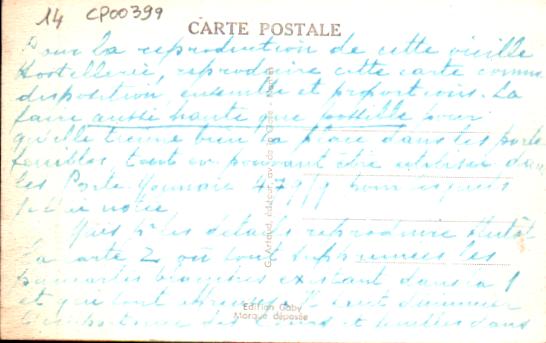 14 CP00399
CARTE POSTALE
Pour la reproduction de cette vieille
hostellerie, reproduire cette carte comme
disposition, ensemble et proportions. La
faire aussi haute que possible pour
qu'elle tienne bien la place dans les porte
feuilles, tout en pouvant être utilisée dans
les Porte Monnaie 479/9
notice
les détails reproduire plutôt
la carte 2 où sont supprimées les
pancartes blanches existant dans
et que
l'importance des et feuilles dans
G. Artaud, éditeur, av. de la Gare - Nantes
Edition Gaby
Marque déposée